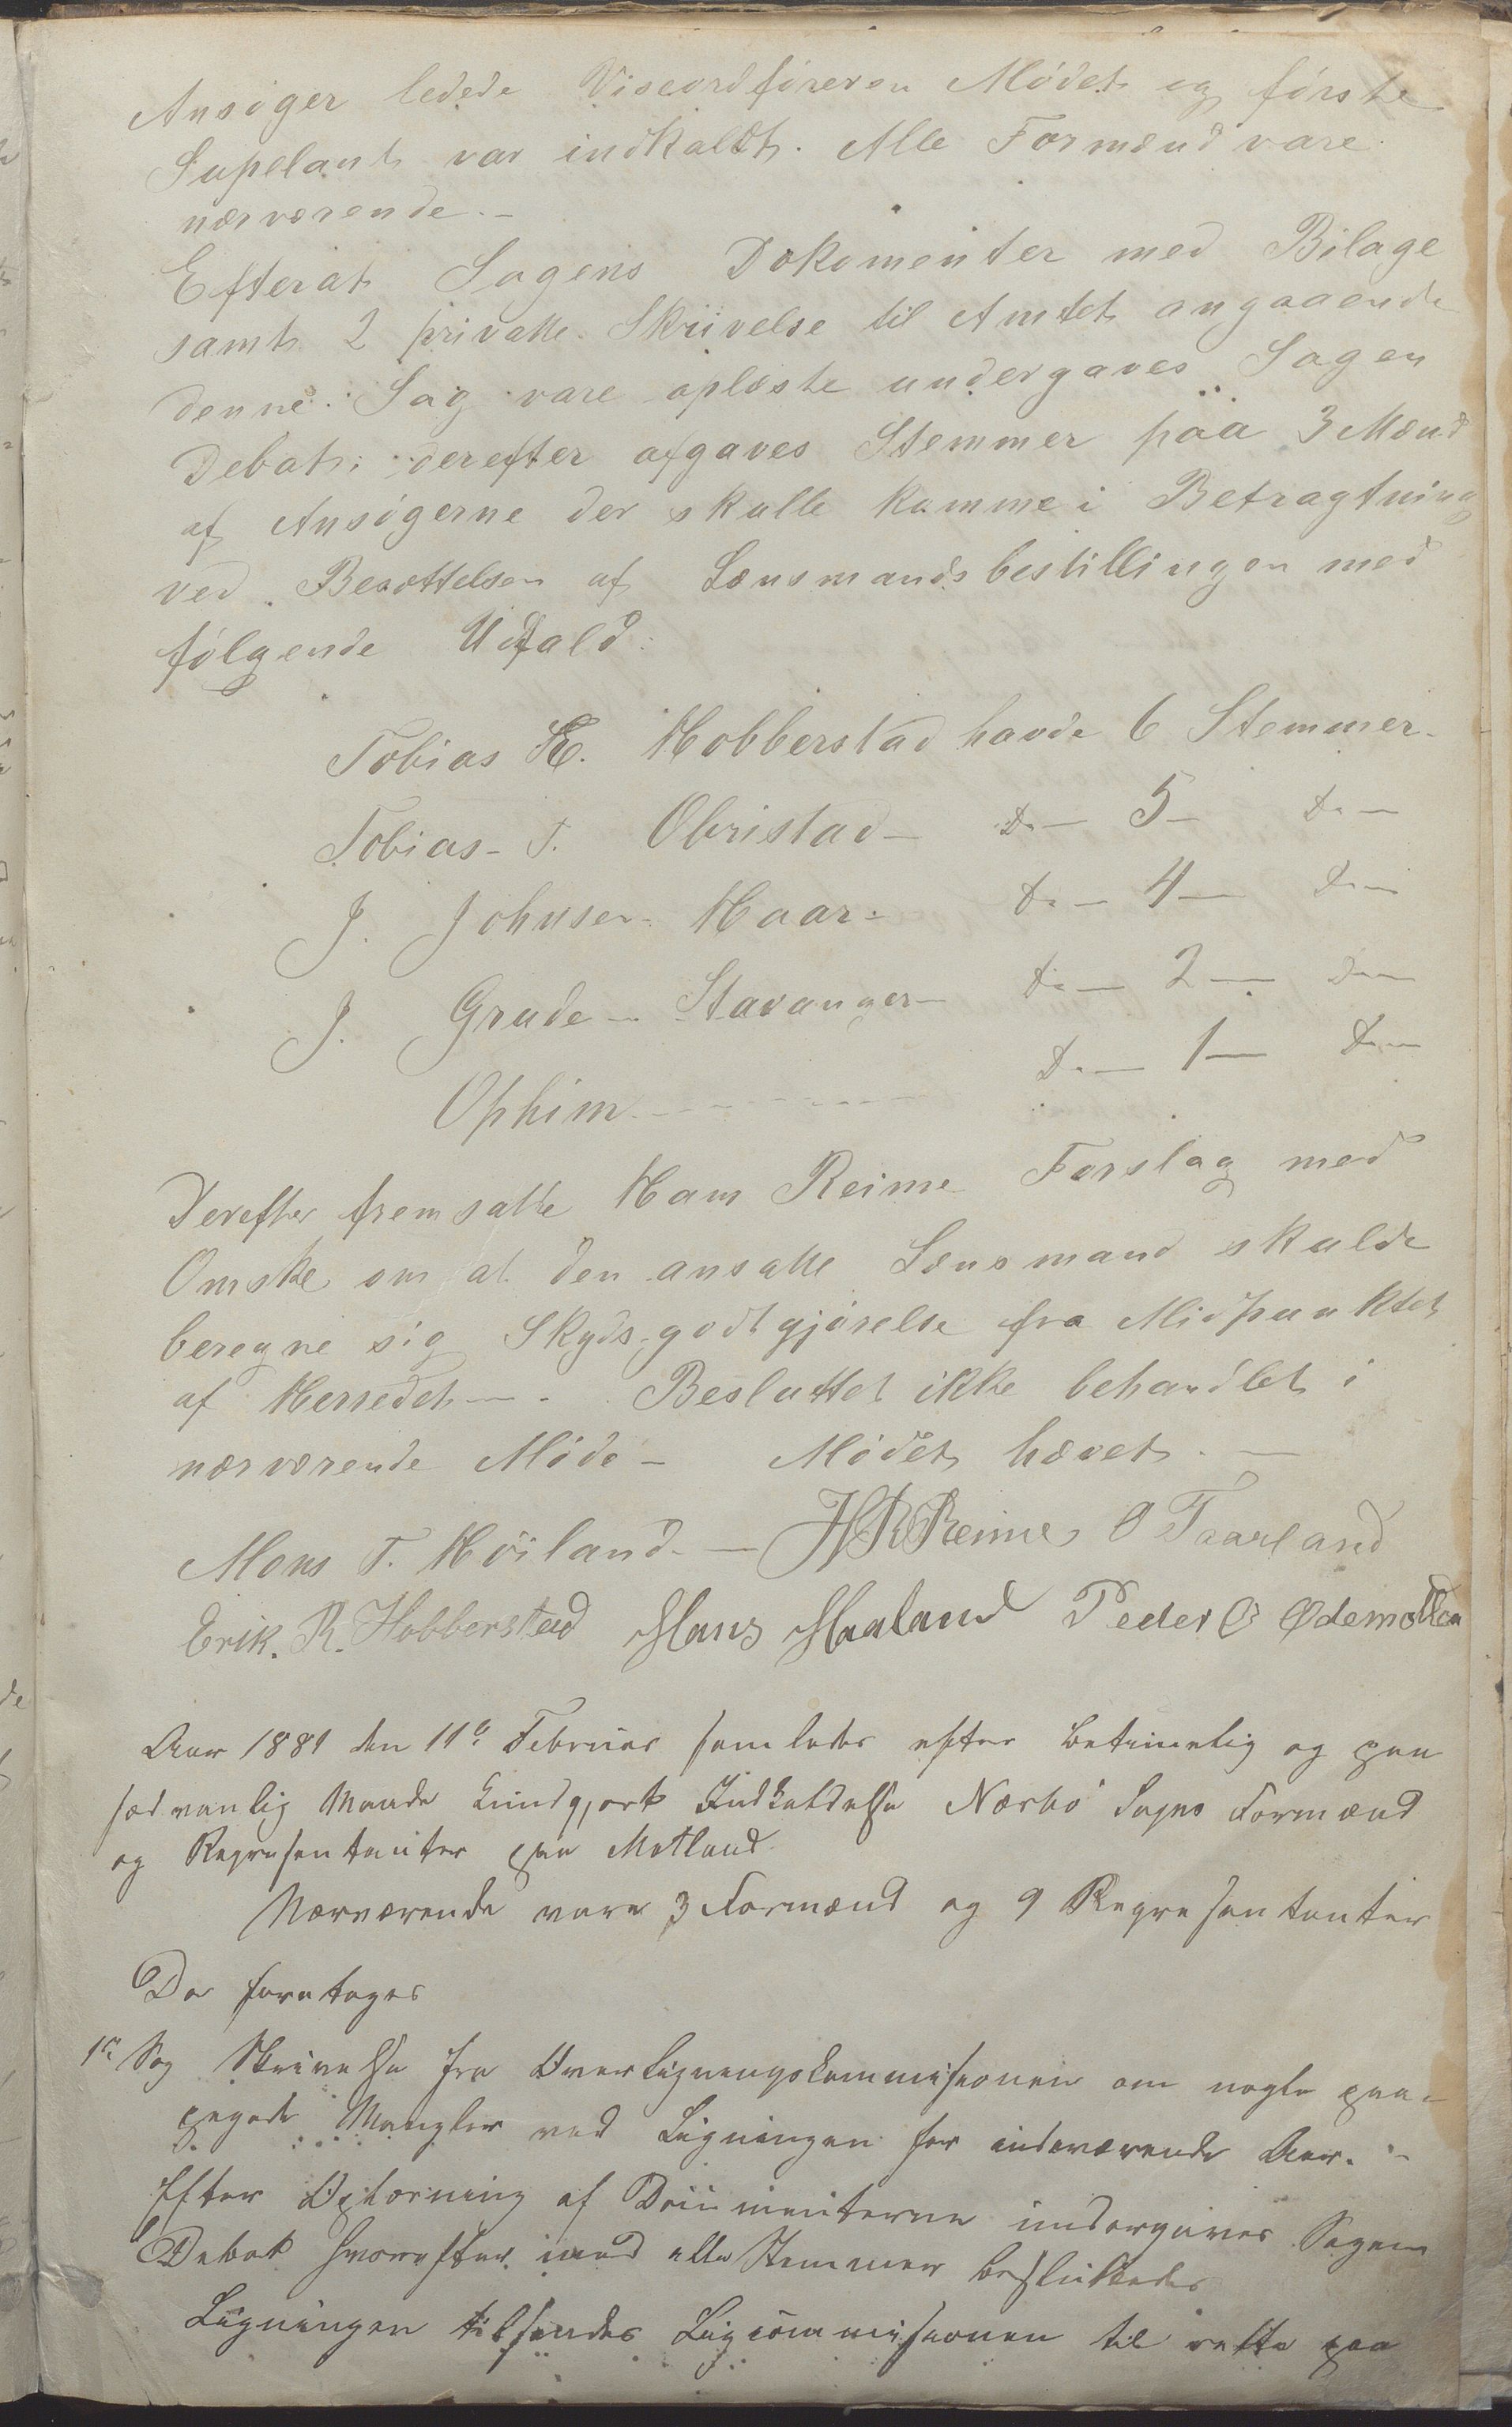 Ansøger ledede Viseordføreren Mødet og første
Supelant var indkaldt. Alle Formænd vare
nærværende.-
Efterat Sagens Dokomenter med Bilage
samt 2 private Skrivelse til Amtet angaaende
denne Sag vare oplæste undergaves Sagen
Debat; derefter afgaves Stemmer paa 3 Mænd
af Ansøgerne der skulle komme i Betragtning
ved Besættelsen af Lensmandsbestillingen med
følgende Udfald:
Tobias E. Hobberstad havde 6 Stemmer-
Tobias- T. Obristad- Do- 5- Do-
J. Johnsen- Haar- Do- 4- Do-
J. Grude- Stavanger- Do- 2- Do-
Ophim- Do- 1- Do-
Derefter fremsatte Hans Reime Forslag med
Ønske om at den ansatte Lensmand skulde
beregne sig Skyds godtgjørelse fra Midpunktet
af Herredet-. Besluttet ikke behandlet i
nærværende Møde- Mødet hævet.-
Mons T. Høiland.- HRReime O Taarland
Erik. R. Hobberstad Hans Haaland Peder O Ødemotland
Aar 1881 den 11te Februar samledes efter betimelig og paa
sædvanlig Maade kundgjort Indkaldelse Nærbø Sogns Formænd
og Repræsentanter paa Motland
Nærværende vare 3 Formænd og 9 Repræsentanter
Da foretoges
1ste Sag Skrivelse fra Overligningskommisionen om nogle paa-
pegede Mangler ved Ligningen for indeværende Aar.-
Efter Oplæsning af Documenterne undergaves Sagen
Debat hvorefter med alle Stemmer besluttedes
Ligningen tilsendes Ligcommisionen til rette paa